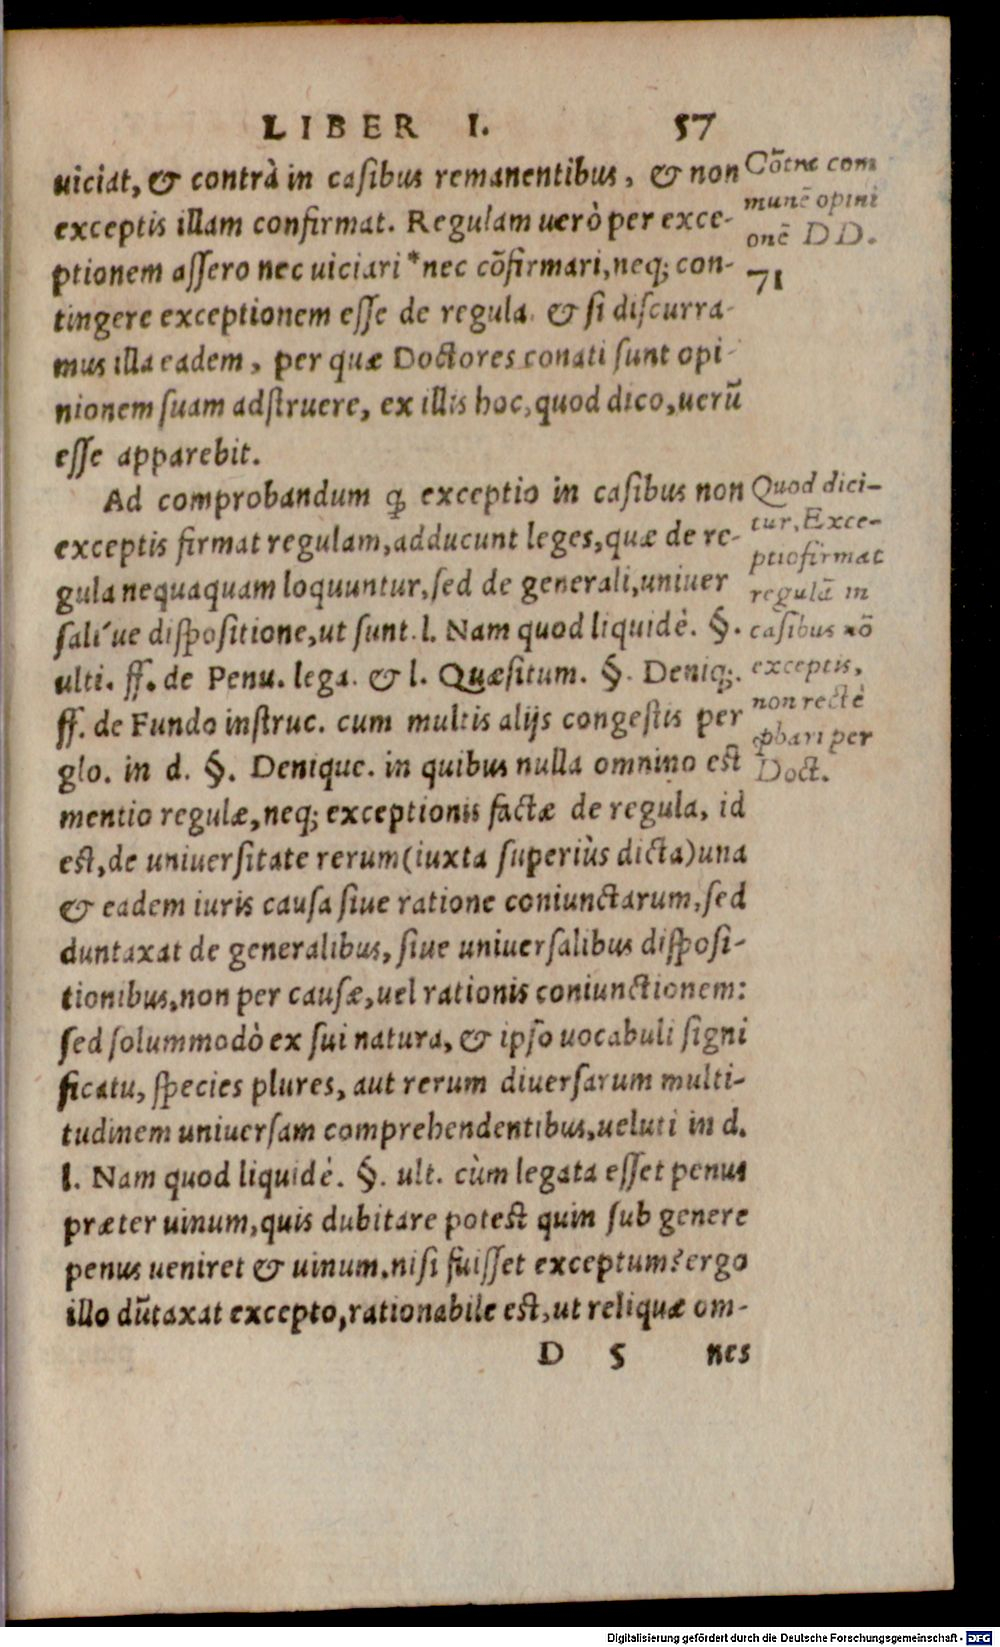 LIBER I. 57
uiciat, & contrà in casibus remanentibus, & non
exceptis illam confirmat. Regulam uerò per exce-
ptionem assero nec uiciari * nec cõfirmari, neq; con-
tingere exceptionem esse de regula. & si discurra-
mus illa eadem, per quæ Doctores conati sunt opi-
nionem suam adstruere, ex illis hoc, quod dico, uerũ
esse apparebit.
Ad comprobandum ꝙ exceptio in casibus non
exceptis firmat regulam, adducunt leges, quæ de re-
gula nequaquam loquuntur, sed de generali, uniuer
sali´ue dispositione, ut sunt. l. Nam quod liquidè. §.
ulti. ff. de Penu. lega. & l. Quæsitum. §. Deniq;.
ff. de Fundo instruc. cum multis alijs congestis per
glo. in d. §. Denique. in quibus nulla omnino est
mentio regulæ, neq; exceptionis factæ de regula, id
est, de uniuersitate rerum (iuxta superiùs dicta) una
& eadem iuris causa siue ratione coniunctarum, sed
duntaxat de generalibus, siue uniuersalibus disposi-
tionibus, non per causæ, uel rationis coniunctionem:
sed solummodò ex sui natura, & ipso uocabuli signi
ficatu, species plures, aut rerum diuersarum multi-
tudinem uniuersam comprehendentibus, ueluti in d.
l. Nam quod liquidè. §. ult. cùm legata esset penus
præter uinum, quis dubitare potest quin sub genere
penus ueniret & uinum, nisi fuisset exceptum? ergo
illo dũtaxat excepto, rationabile est, ut reliquæ om-
D 5 nes
Cõtra com
munẽ opini
onẽ DD.
71
Quod dici-
tur, Exce-
ptio firmat
regulã in
casibus nõ
exceptis,
non rectè
ꝓbari per
Doct.
Digitalisierung gefördert durch die Deutsche Forschungsgemeinschaft - DFG